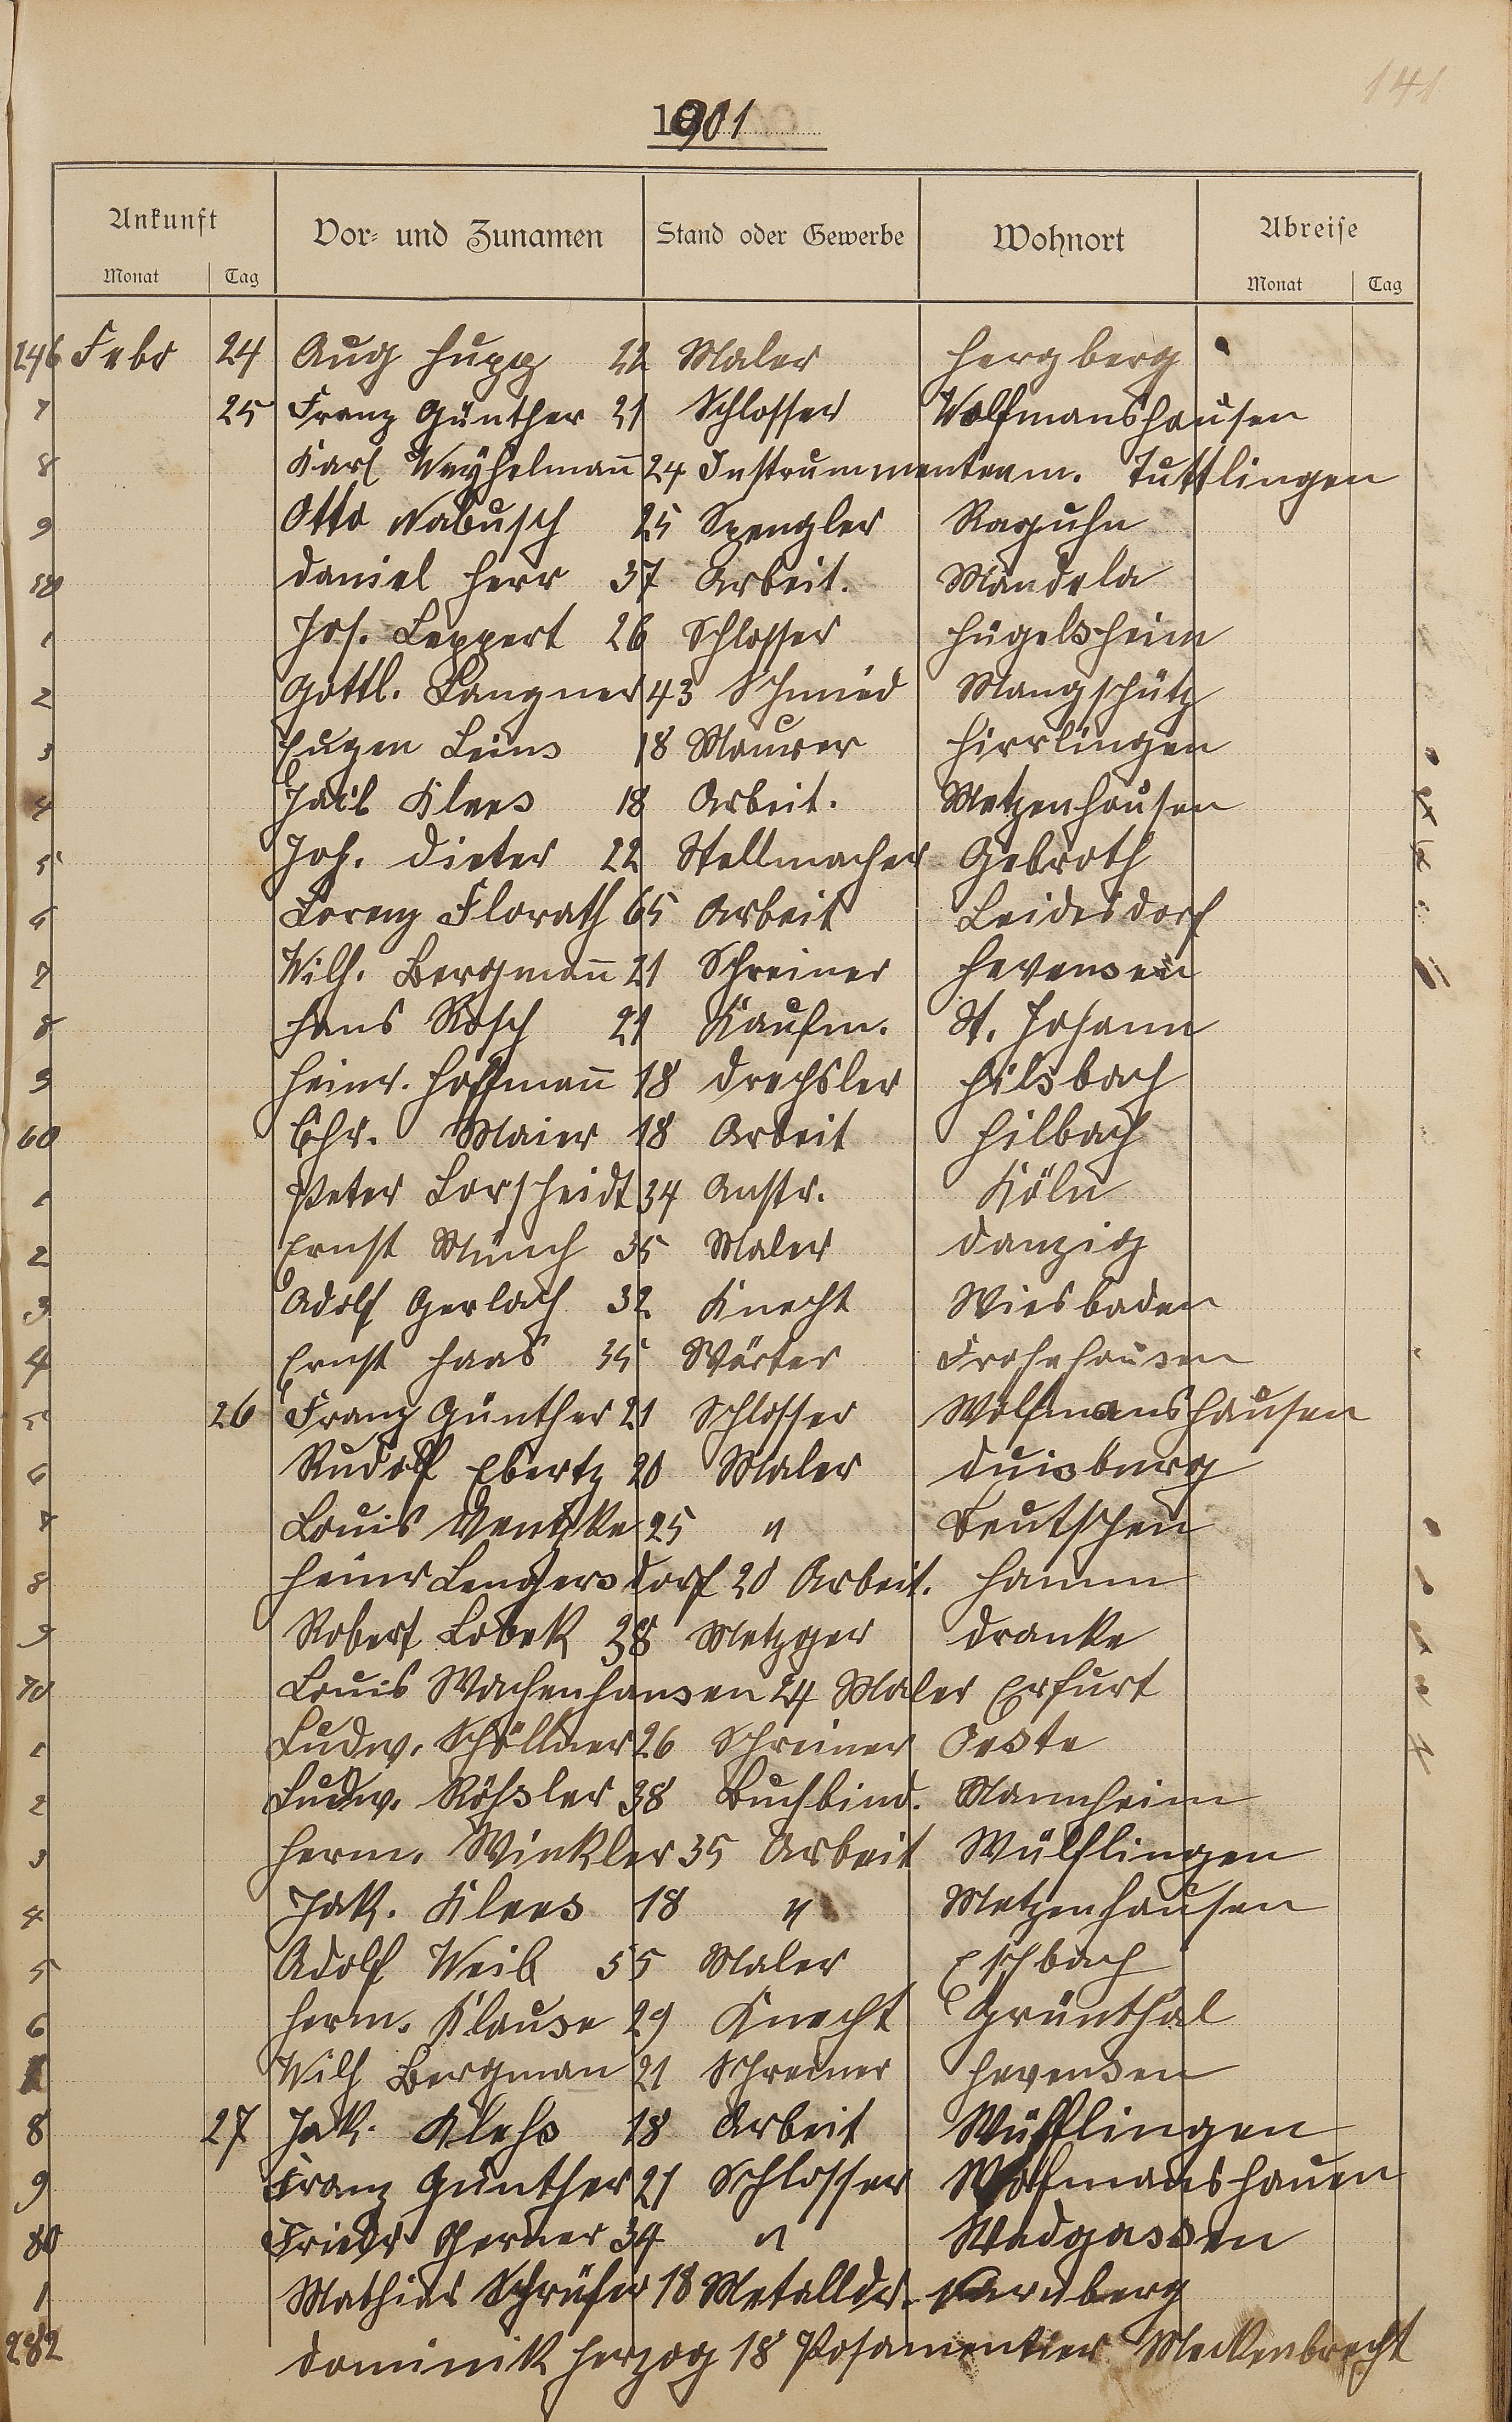 141
1901
Ankunft Vor- und Zunamen Stand oder Gewerbe Wohnort Abreise
Monat Tag Monat Tag
246 Febr 24 Aug Hupp 22 Maler Hergberg
7 25 Franz Günther 21 Schlosser Wolfmanshausen
8 Karl Weyhelman̅ 24 Instrummentenm. Tuttlingen
9 Otto Nabusch 25 Spengler Raguhn
50 Daniel Herr 37 Arbeit. Mandela
1 Jos. Leppert 26 Schlosser Hügelsheim
2 Gottl. Langner 43 Schmied Mangschütz
3 Eugen Leins 18 Maurer Hirrlingen
4 Klees 18 Arbeit. Metzenhausen
5 Joh. Dieter 22 Stellmacher Gebroth
6 Lorenz Florath 65 Arbeit Leidesdorf
7 Wilh. Bergman̅ 21 Schreiner Hevensen
8 Hans Rosch 21 Kaufm. St. Johann
9 Heinr. Hoffman̅ 18 Drechsler Hilsbach
60 Chr. Maier 18 Arbeit Hilbach
1 Peter Lorscheidt 34 Anstr. Köln
2 Ernst Münch 35 Maler Danzig
3 Adolf Gerlach 32 Knecht Wiesbaden
4 Ernst Haas 35 Wärter Frohnhausen
5 26 Franz Günther 21 Schlosser Wolfmanshausen
6 Rudolf Ebertz 20 Maler Duisburg
7 Louis Ventzke 25 " Beutschen
8 Heinr Lengersdorf 20 Arbeit. Hamm
9 Robert Lobek 38 Metzger Dranke
70 Louis Wachenhausen 24 Maler Erfurt
1 Ludw. Schöllner 26 Schreiner Oeste
2 Ludw. Rößler 38 Buchbind. Mannheim
3 Herm. Winkler 35 Arbeit Wülflingen
4 Jak. Klees 18 " Metzenhausen
5 Adolf Weil 55 Maler Eschbach
6 Herm. Klause 29 Knecht Grünthal
7 Wilh Bergman 21 Schreiner Hevensen
8 27 Jak. Klehs 18 Arbeit Wülflingen
9 Franz Günther 21 Schlosser Wolfmanshauen
80 Friedr Gerner 34 " Wadgassen
1 Mathias Schrüfer 18 Metalldr. Nürnberg
282 Dominik Herzog 18 Posamentier Meckenbrecht